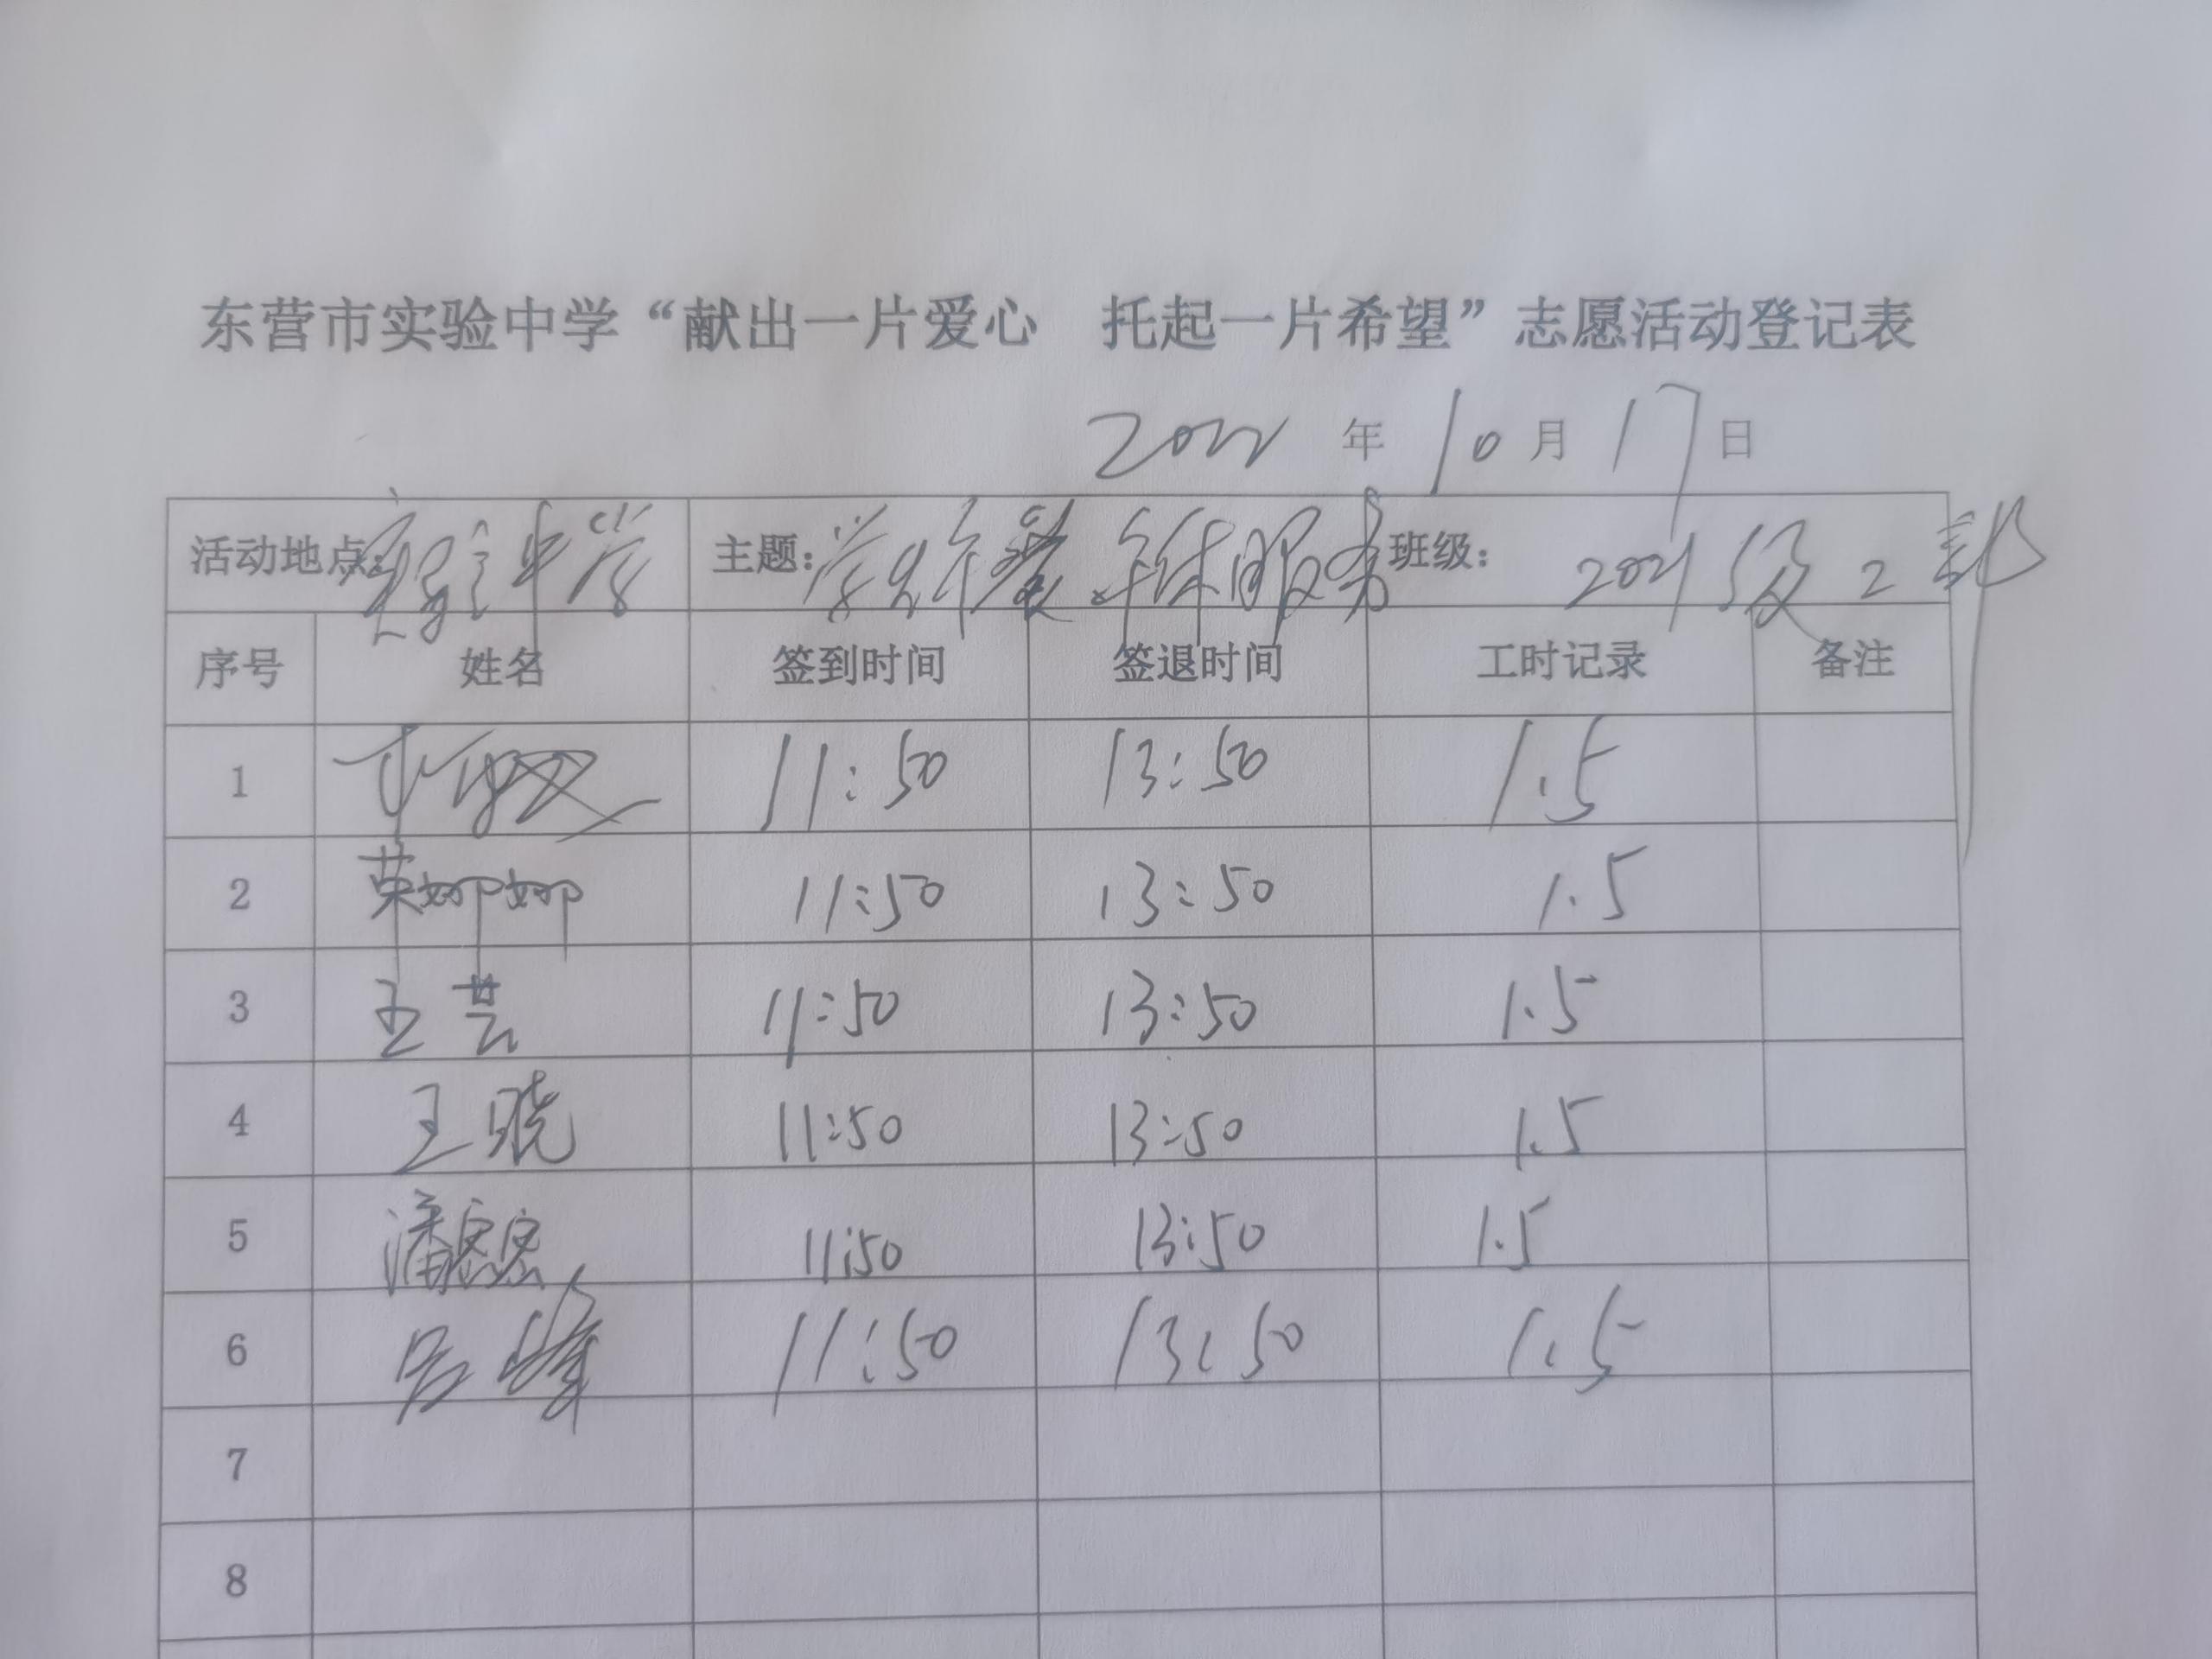 东营市实验中学“献出一片爱心 托起一片希望”志愿活动登记表
2022 年 10 月 17 日
活动地点:实验中学 主题:学生午餐 午休服务 班级: 2021级2部
序号 姓名 签到时间 签退时间 工时记录 备注
1 11:50 13:50 1.5
2 荣娜娜 11:50 13:50 1.5
3 王芸 11:50 13:50 1.5
4 王晓 11:50 13:50 1.5
5 潘密密 11:50 13:50 1.5
6 吕峰 11:50 13:50 1.5
7
8